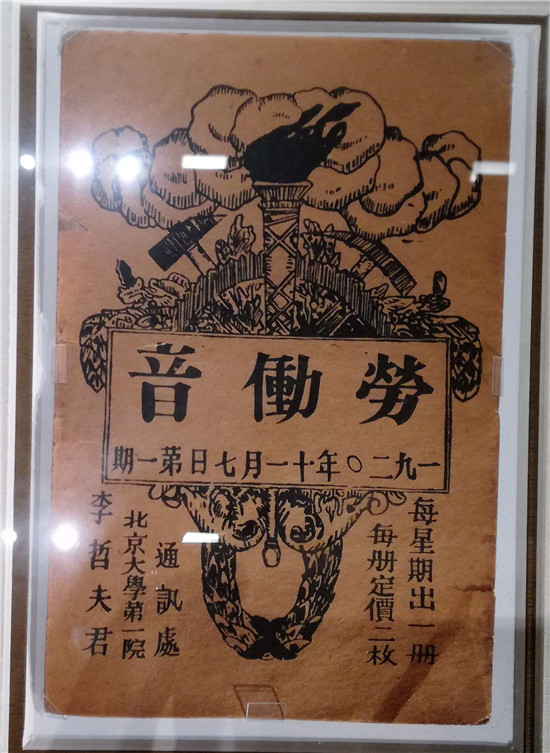 勞働音
一九二〇年十一月七日第一期
每星期出一册
每册定價二枚
通訊處
北京大學第一院
李哲夫君